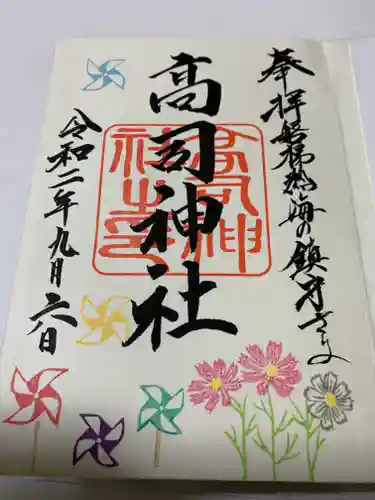 奉拝 磐梯熱海の鎮守さま
高司神社
令和二年九月六日